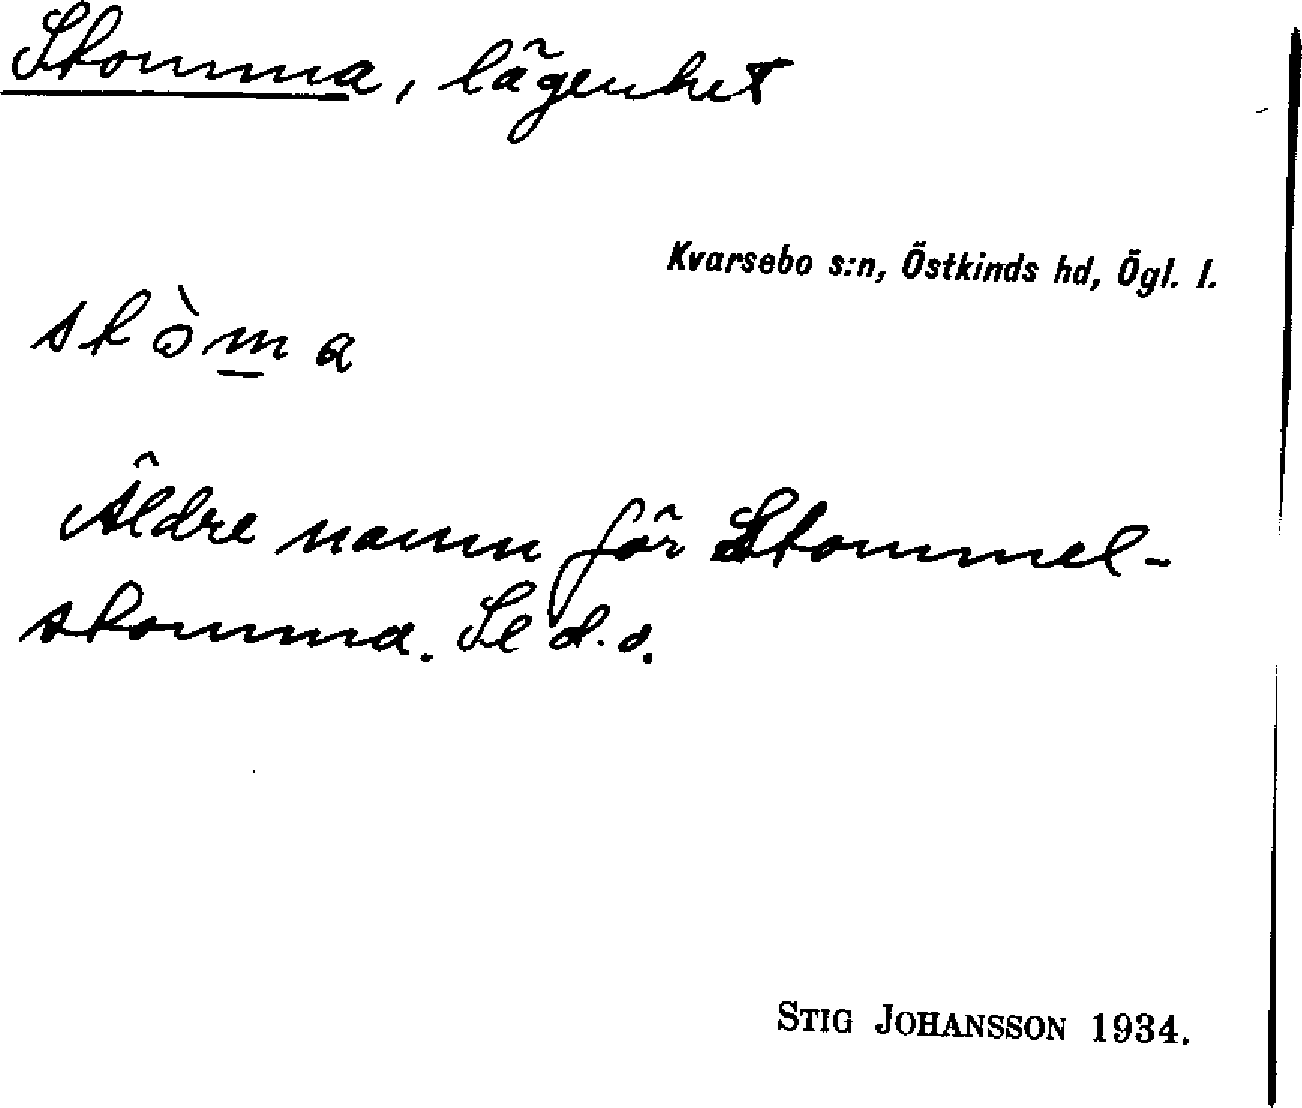 Skomma, lägenhet
Kvarsebo s:n, Östkinds hd, Ögl. l.
skòm̲a
Äldre namn för Skommel-
skomma. Se d.o.
STIG JOHANSSON 1934.